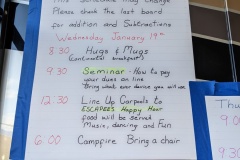 This Schedule may Change
Please check the last board
for addition and Subtractions
Wednesday January 19th
8:30 Hugs & Mugs
(Continental breakfast)
9:30 Seminar - How to pay
your dues on line
Bring what ever device you will use
12:30 Line Up Carpools to
ESCAPEES Happy Hour
food will be served
Music, dancing and Fun
6:00 Campfire Bring a chair
Thu
9:0
9:30